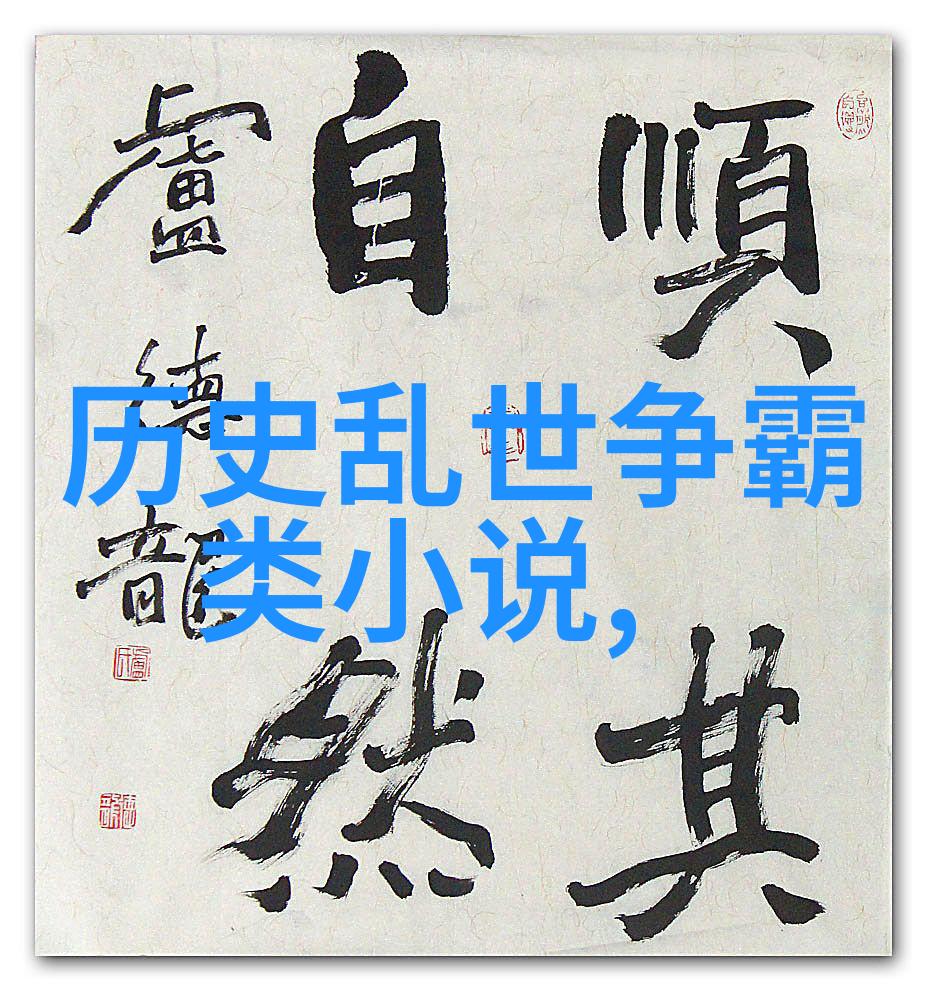 順其
自然
盧德龍
历史乱世争霸
类小说,